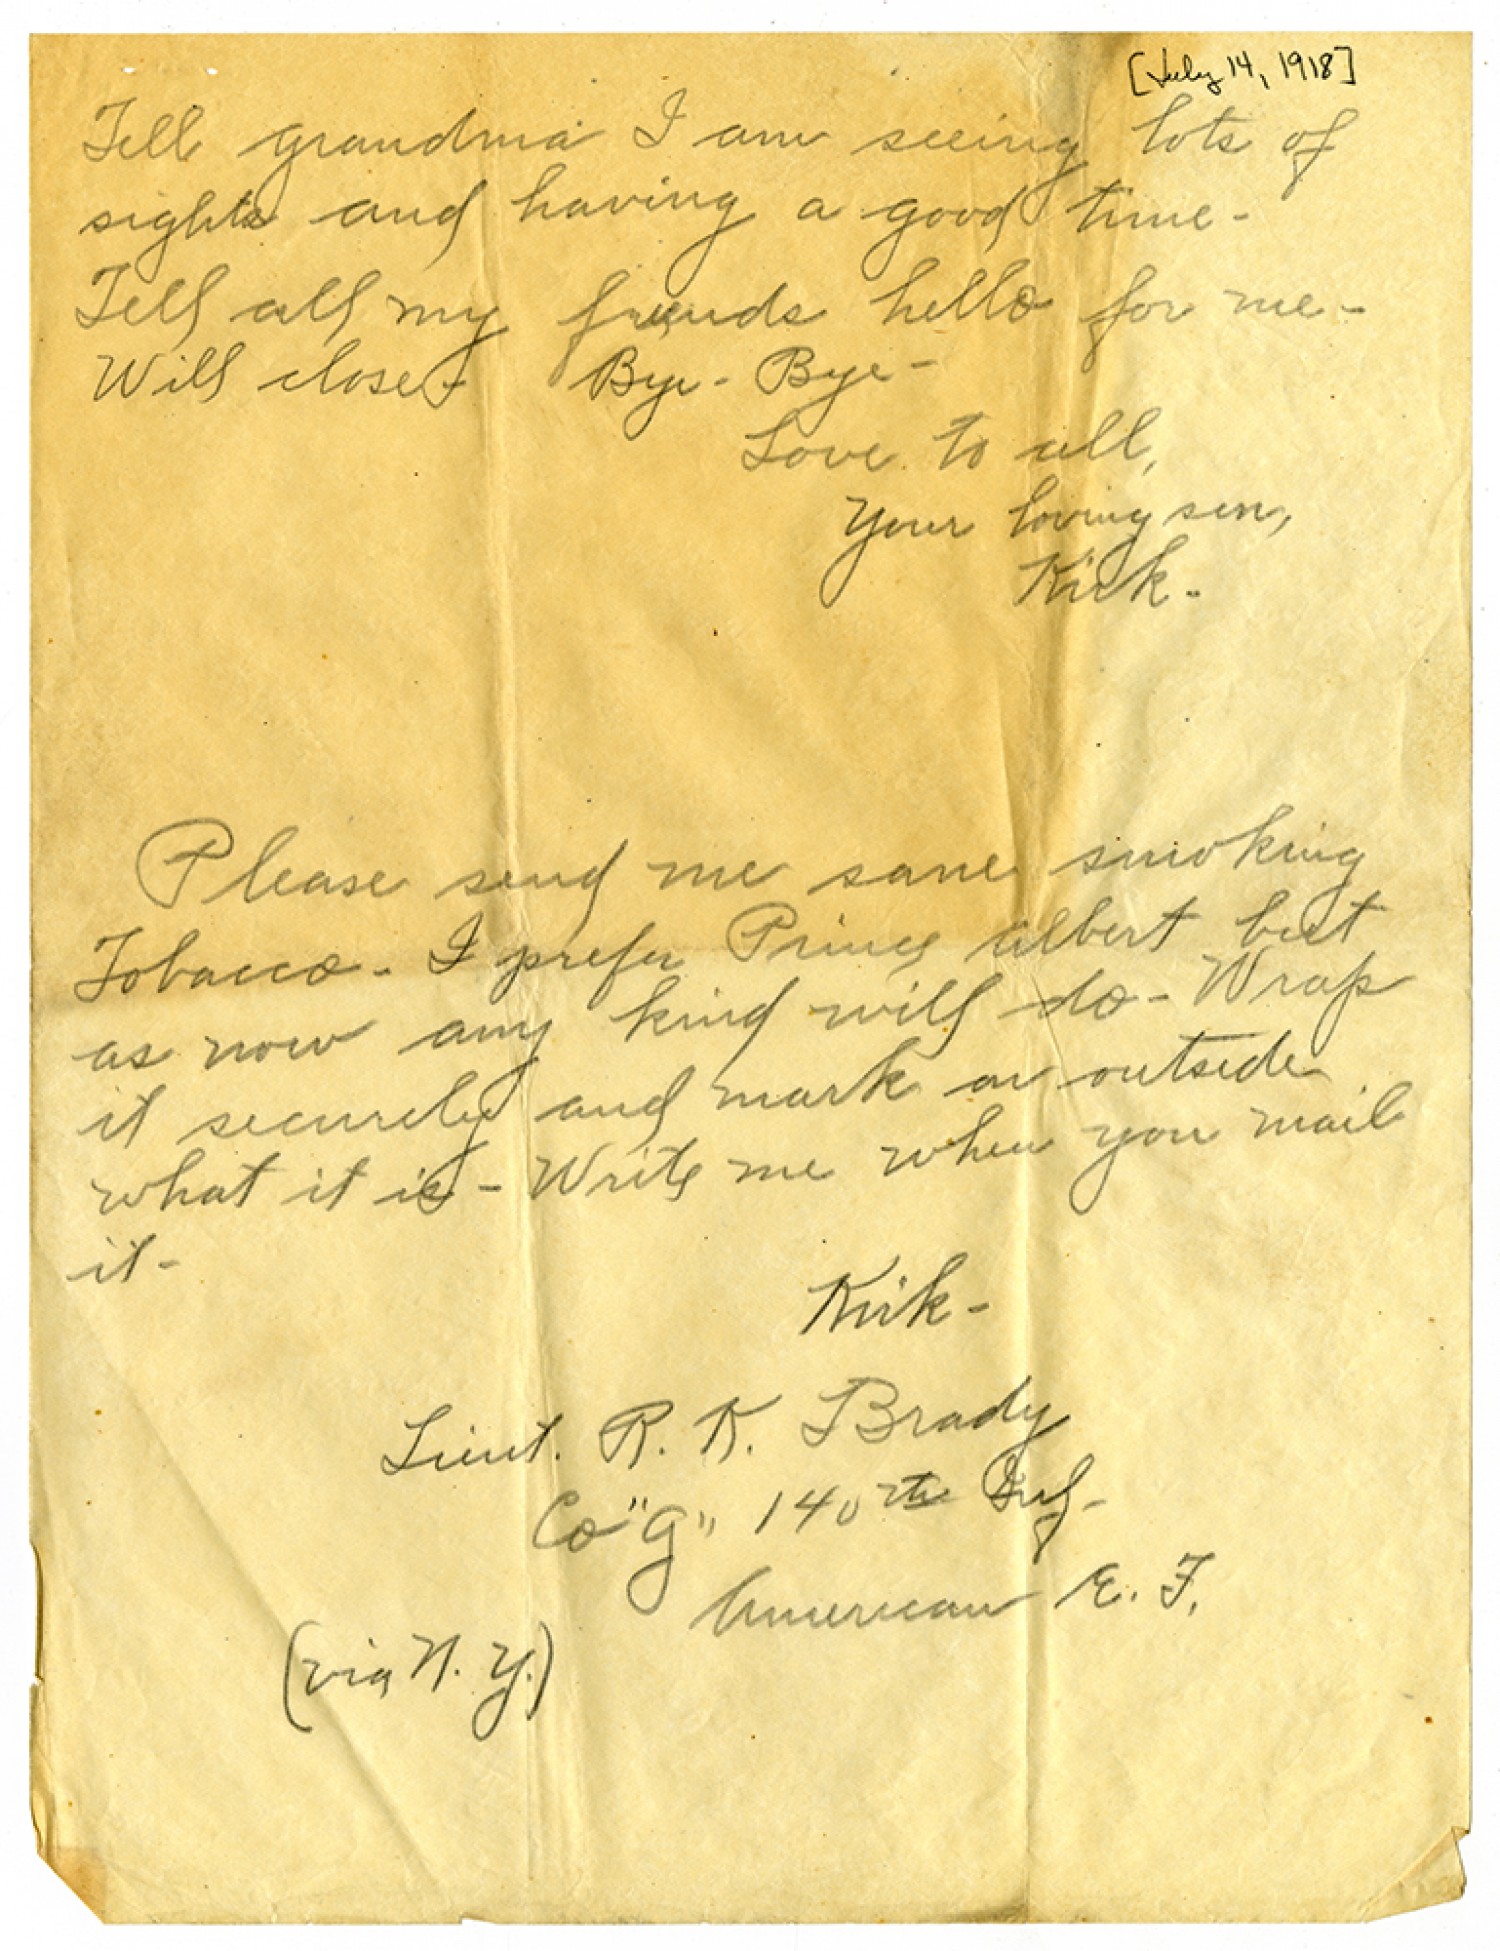 [July 14, 1918]
Tell grandma I am seeing lots of
sights and having a good time-
Tell all my friends hello for me-
Will close- Bye-Bye-
Love to all,
Your loving son,
Kirk-
Please send me some smoking
Tobacco- I prefer Prince Albert but
as now any kind will do- Wrap
it securely and mark on outside
what it is- Write me when you mail
it-
Kirk-
Lieut. R. K. Brady
Co "G" 140th Inf-
American E. F.
(via N. Y.)